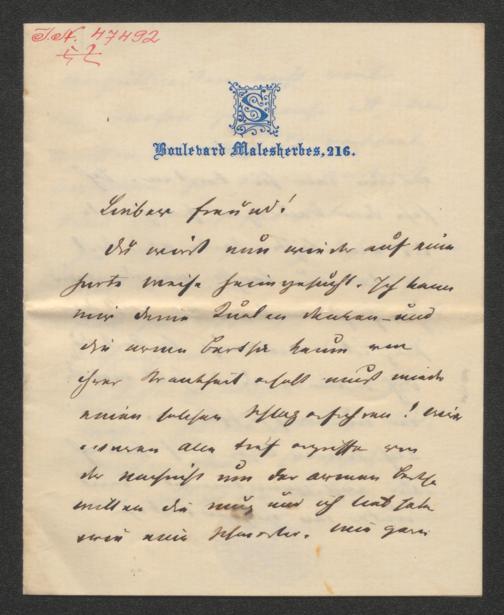 I.N. 47492
S
Boulevard Malesherbes, 216.
Lieber Freund!
Du wirst nun wieder auf eine
harte Weise heimgesucht. Ich kann
mir deine Qualen denken – und
die arme Bertha kaum von
ihrer Krankheit erholt muß wieder
einen solchen Schlag erfahren! Wir
waren alle tief ergriffen von
der Nachricht um der armen Bertha
willen die und ich lieb habe
wie eine Schwester. Wie gern